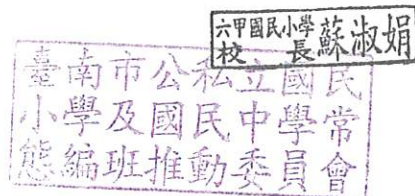 六甲國民小學
校長 蘇淑娟
臺南市公私立國民
小學及國民中學常
態編班推動委員會